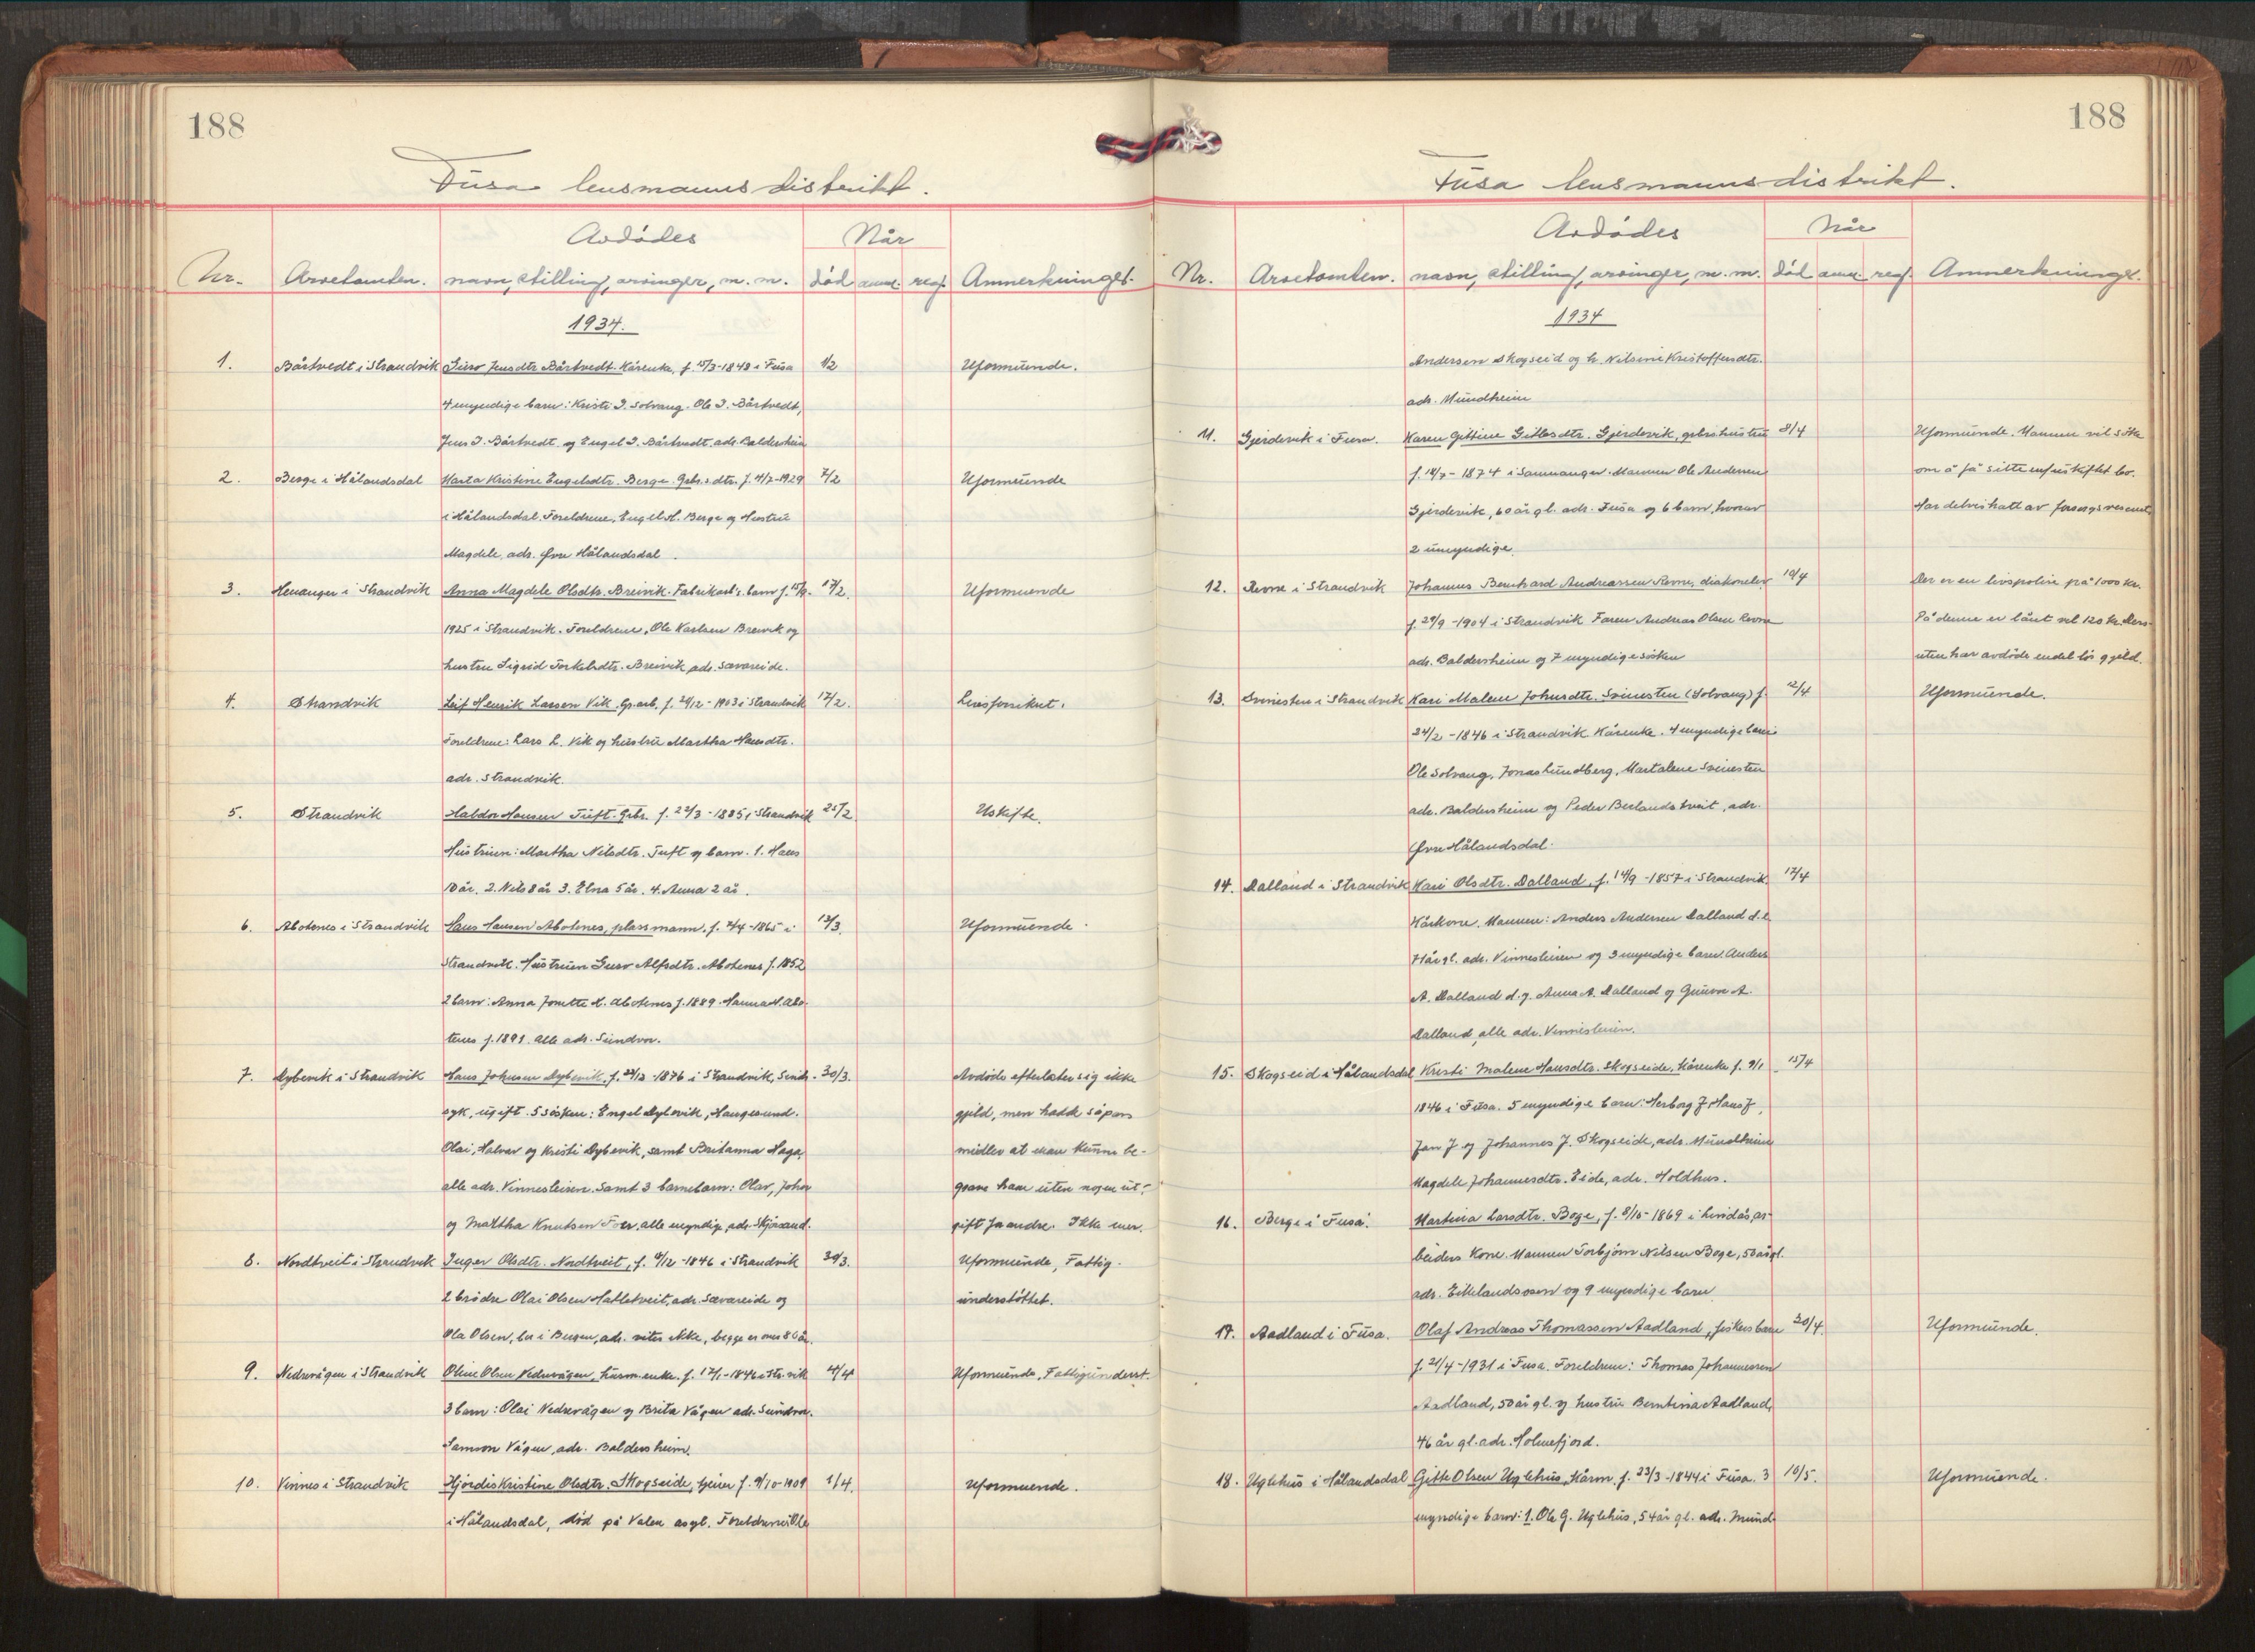 188
Fusa lensmannsdistrikt.
Avdødes
Når
Nr. Arvetomten. navn, stilling, arvinger, m. m. død anm. reg. Anmerkninger.
1934.
1. Bårtvedt i Strandvik Guro Jensdtr. Bårtvedt. Kårenke, f. 15/3-1848 i Fusa 1/2 Uformuende.
4 myndige barn: Kristi J. Solvang. Ole J. Bårtvedt,
Jens J. Bårtvedt og Engel J. Bårtvedt. adr. Baldersheim
2. Berge i Hålandsdal Marta Kristine Engelsdtr. Berge. Gbr.s. dtr. f. 11/7-1929 7/2 Uformuende
i Hålandsdal. Foreldrene, Engel M. Berge og Hustru
Magdele, adr. Øvre Hålandsdal.
3. Henanger i Strandvik Anna Magdele Olsdtr. Breivik. Fabrikarb's. barn f. 15/9- 17/2. Uformuende
1925 i Strandvik. Foreldrene, Ole Karlsen Breivik og
hustru Sigrid Torkelsdtr. Breivik adr. Sævareide.
4. Strandvik Leif Henrik Larsen Vik, Gr.arb. f. 24/12-1903 i Strandvik 17/2. Livsforsikret.
Foreldrene: Lars L. Vik og hustru Martha Hansdtr.
adr. Strandvik.
5. Strandvik Haldor Hansen Tuft. Gbr. f. 22/3-1885 i Strandvik 25/2 Uskifte.
Hustruen: Martha Nilsdtr. Tuft og barn. 1. Hans
10 år. 2. Nils 8 år 3. Elna 5 år. 4. Anna 2 år.
6. Abotenes i Strandvik Hans Hansen Abotnes, plassmann, f. 2/4-1865 i 13/3. Uformuende.
Strandvik. Hustruen Guro Alfsdtr. Abotnes f. 1852
2 barn: Anna Jonette H. Abotenes f. 1889. Hanna H. Abo-
tenes f. 1891. alle adr. Sundvor.
7. Dybevik i Strandvik Hans Johnsen Dybevik, f. 24/12-1876 i Strandvik, Sinds- 30/3. Avdøde efterlater sig ikke
syk, ugift. 5 søsken: Engel Dybevik, Haugesund. gjeld, men hadde såpass
Olai, Halvar og Kristi Dybevik, samt Britanna Haga, midler at man kunne be-
alle adr. Vinnesleiren. Samt 3 barnebarn: Olav, Johan grave ham uten nogen ut-
og Martha Knutsen alle myndige, adr. gift fra andre. Ikke mer.
8. Nordtveit i Strandvik Inger Olsdtr. Nordtveit, f. 9/12-1846 i Strandvik 30/3. Uformuende, Fattig-
2 brødre Olai Olsen Hatletveit, adr. Sævareide og understøttet.
Ola Olsen, bor i Bergen, adr. vites ikke, begge er over 80 år.
9. Nedrevågen i Strandvik Oline Olsen Nedrevågen, husm.enke. f. 17/1-1846 i Str.vik 4/4 Uformuende, Fattigunderst.
3 barn: Olai Nedrevågen og Brita Vågen adr. Sundvor.
Samson Vågen, adr. Baldersheim.
10. Vinnes i Strandvik Hjørdis Kristine Olsdtr. Skogseide, tjener f. 9/10-1909 1/4. Uformuende.
i Hålandsdal, død på Valen asyl. Foreldrene: Ole
188
Fusa lensmannsdistrikt.
Avdødes
Når
Nr. Arvetomten. navn, stilling, arvinger, m. m. død anm. reg. Anmerkninger.
1934
Andersen Skogseid og h. Nilsine Kristoffersdtr.
adr. Mundheim
11. Gjerdevik i Fusa. Karen Gittine Gitlesdtr. Gjerdevik, gbrs. hustru 8/4 Uformuende. Mannen vil søke
f. 18/7-1874 i Samnanger. Mannen Ole Andersen om å få sitte i uskiftet bo.
Gjerdevik, 60 år gl. adr. Fusa og 6 barn, hvorav Har delvis hatt av
2 umyndige.
12. Revne i Strandvik Johannes Bernhard Andreassen Revne, diakonelev 10/4 Der er en livspolise på 1000 kr.
f. 29/9-1904 i Strandvik Faren Andreas Olsen Revne På denne er lånt vel 120 kr. Des-
adr. Baldersheim og 7 myndige søsken uten har avdøde endel løs gjeld.
13. Svinesten i Strandvik Kari Malene Johnsdtr. Svinesten (Solvang) f. 12/4 Uformuende.
24/2-1846 i Strandvik Kårenke. 4 myndige barn:
Ole Solvang, Jonas Lundberg, Martalene Svinesten
adr. Baldersheim og Peder Berlandstveit, adr.
Øvre Hålandsdal.
14. Dalland i Strandvik Kari Olsdtr. Dalland, f. 14/9-1857 i Strandvik 17/4
Kårkone. Mannen: Anders Andersen Dalland d.e.
71 år gl. adr. Vinnesleiren og 3 myndige barn. Anders
A. Dalland d.y. Anna A. Dalland og Guro A.
Dalland, alle adr. Vinnesleiren.
15. Skogseid i Hålandsdal Kristi Malene Hansdtr. Skogseide, Kårenke f. 9/1 15/4
1846 i Fusa. 5 myndige barn: Herborg J, Hans J,
Jan J og Johannes J. Skogseide, adr. Mundheim
Magdele Johannesdtr. Eide, adr. Holdhus.
16. Berge i Fusa. Martina Larsdtr. Boge, f. 8/10-1869 i Lindås, ar-
beiders Kone. Mannen Torbjørn Nilsen Boge, 50 år gl.
adr. Eikelandsosen og 9 myndige barn
17. Aadland i Fusa. Olaf Andreas Thomassen Aadland, fiskers barn 20/4. Uformuende.
f. 21/4-1931 i Fusa. Foreldrene: Thomas Johannessen
Aadland, 50 år gl. og hustru Berntina Aadland,
46 år gl. adr. Holmefjord.
18. Uglehus i Hålandsdal Gitle Olsen Uglehus, Kårm. f. 23/3-1844 i Fusa. 3 10/5. Uformuende.
myndige barn: 1. Ole G. Uglehus, 54 år gl. adr. Mund-